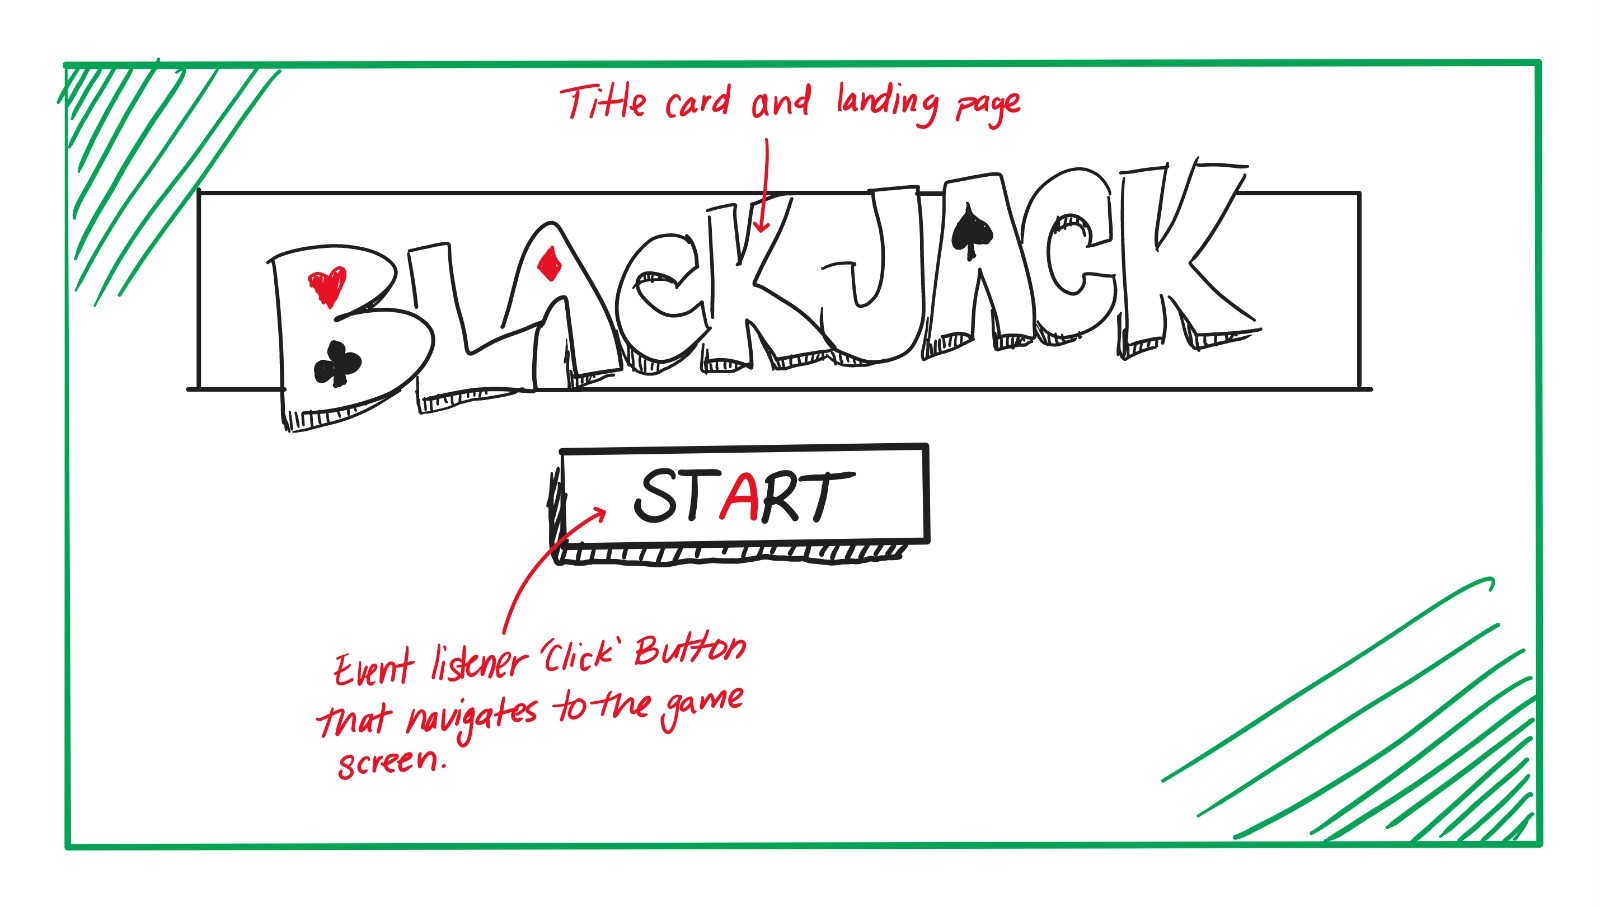 Title card and landing page
BLACKJACK
START
Event listener 'Click' Button
that navigates to the game
screen.